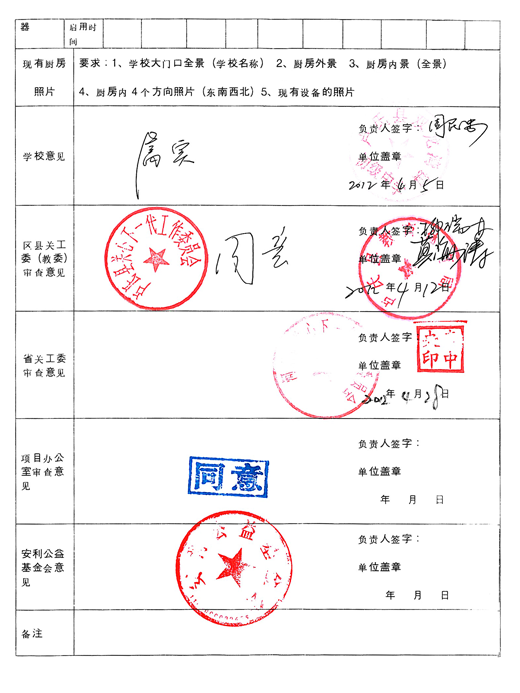 器 启用时间
现有厨房照片 要求：1、学校大门口全景（学校名称） 2、厨房外景 3、厨房内景（全景）
4、厨房内4个方向照片（东南西北）5、现有设备的照片
学校意见 属实 负责人签字：
单位盖章
2012年4月5日
区县关工委（教委）审查意见 同意 负责人签字：
单位盖章
2012年4月12日
古丈县关心下一代工作委员会
省关工委审查意见 负责人签字：
单位盖章
2012年4月28日
项目办公室审查意见 同意 负责人签字：
单位盖章
年 月 日
安利公益基金会意见 负责人签字：
单位盖章
年 月 日
安利公益基金会
备注